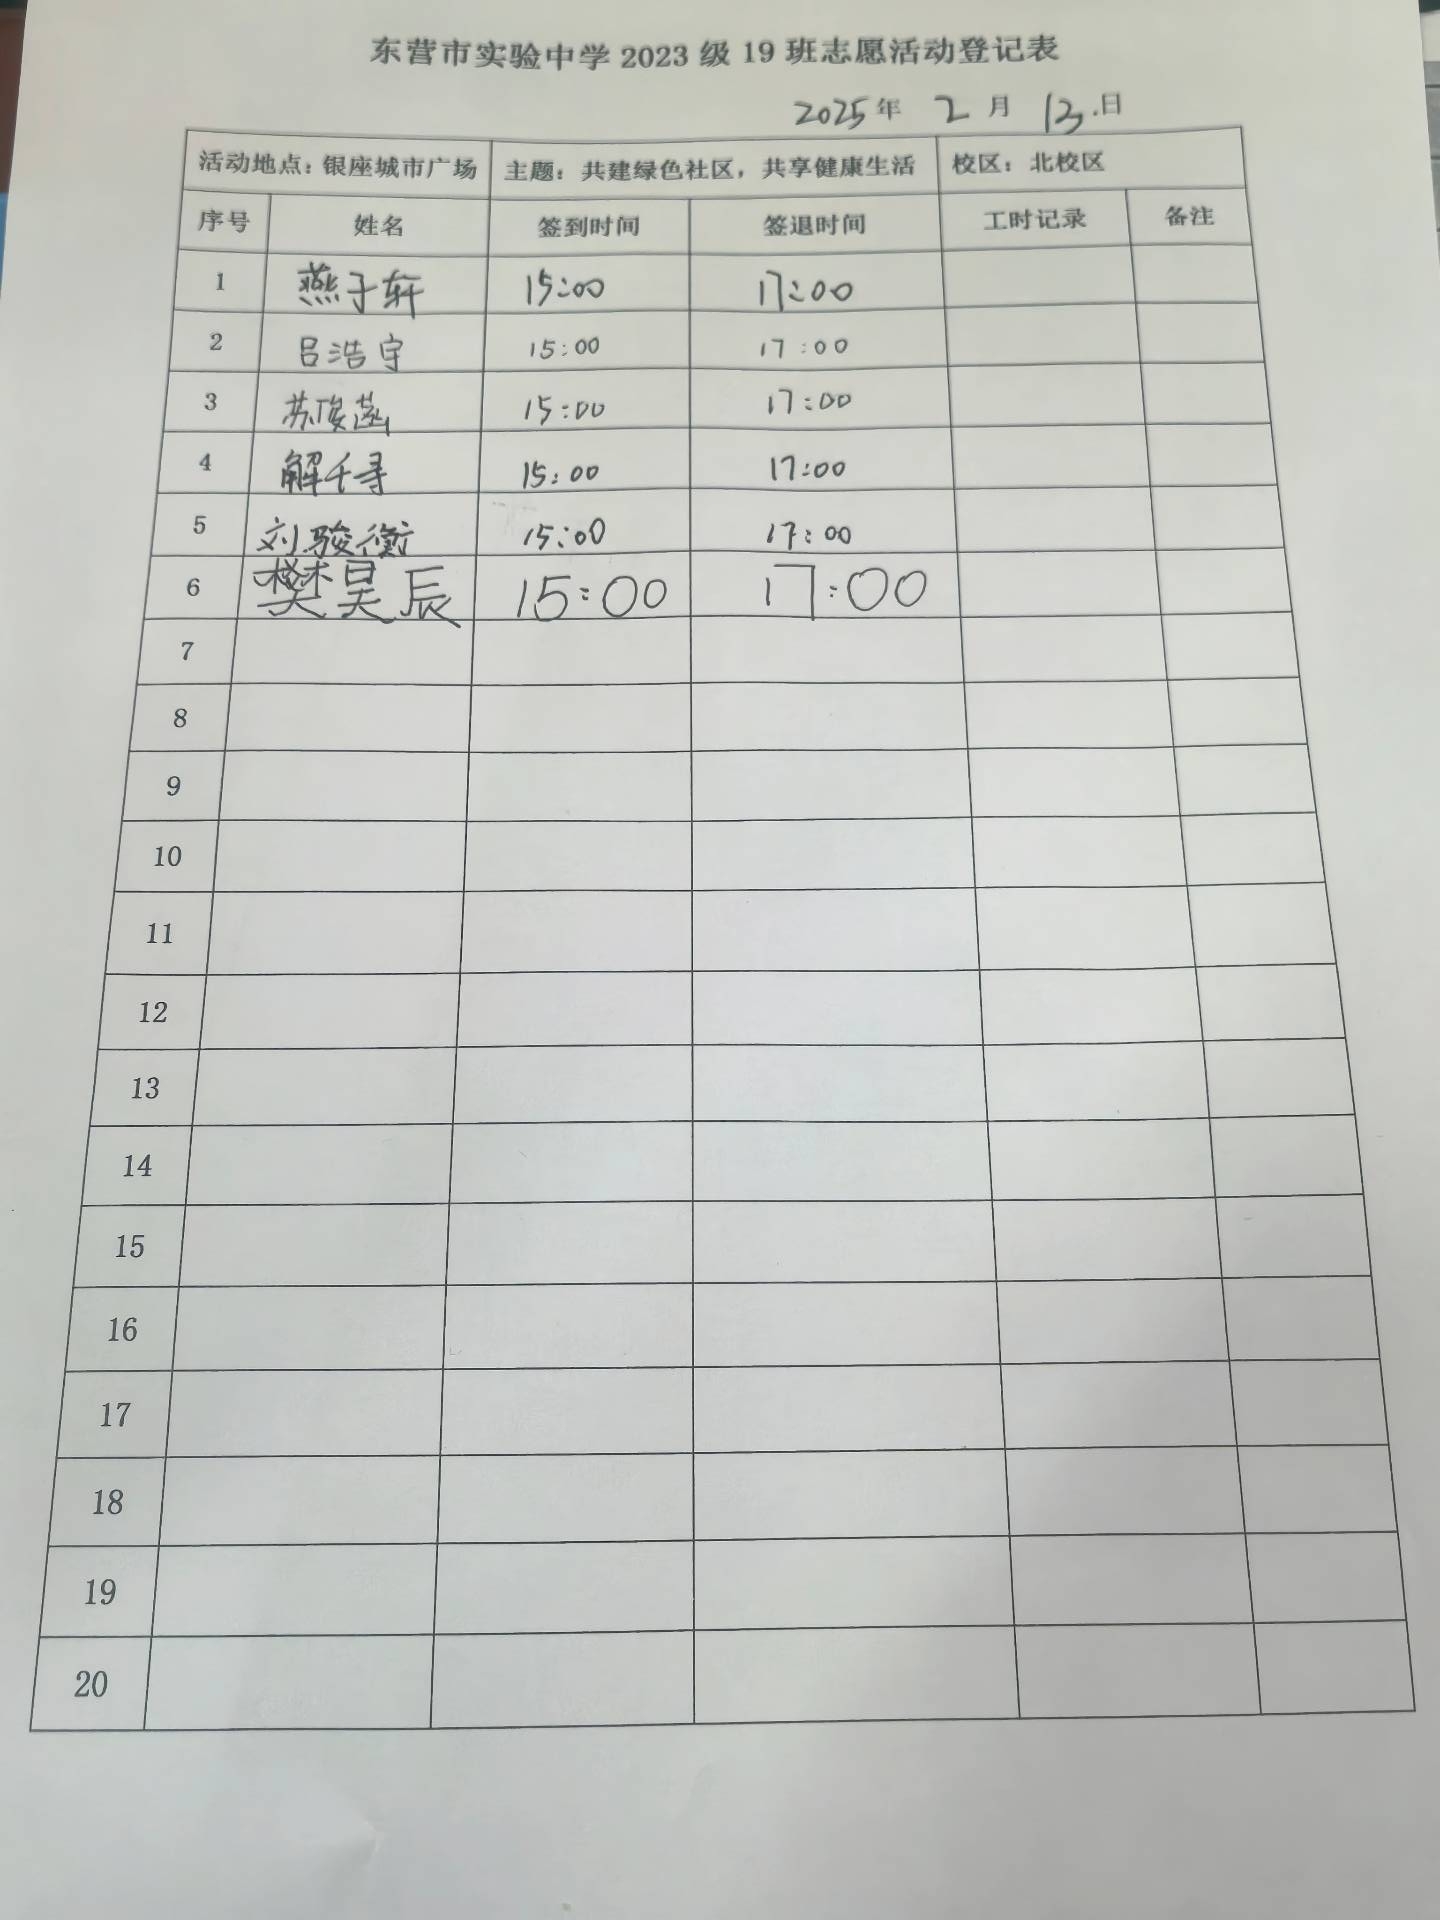 东营市实验中学 2023 级 19 班志愿活动登记表
2025 年 2 月 13 日
活动地点：银座城市广场 主题：共建绿色社区，共享健康生活 校区：北校区
序号 姓名 签到时间 签退时间 工时记录 备注
1 燕子轩 15:00 17:00
2 吕浩宇 15:00 17:00
3 苏俊菡 15:00 17:00
4 解千寻 15:00 17:00
5 刘骏衡 15:00 17:00
6 樊昊辰 15:00 17:00
7
8
9
10
11
12
13
14
15
16
17
18
19
20